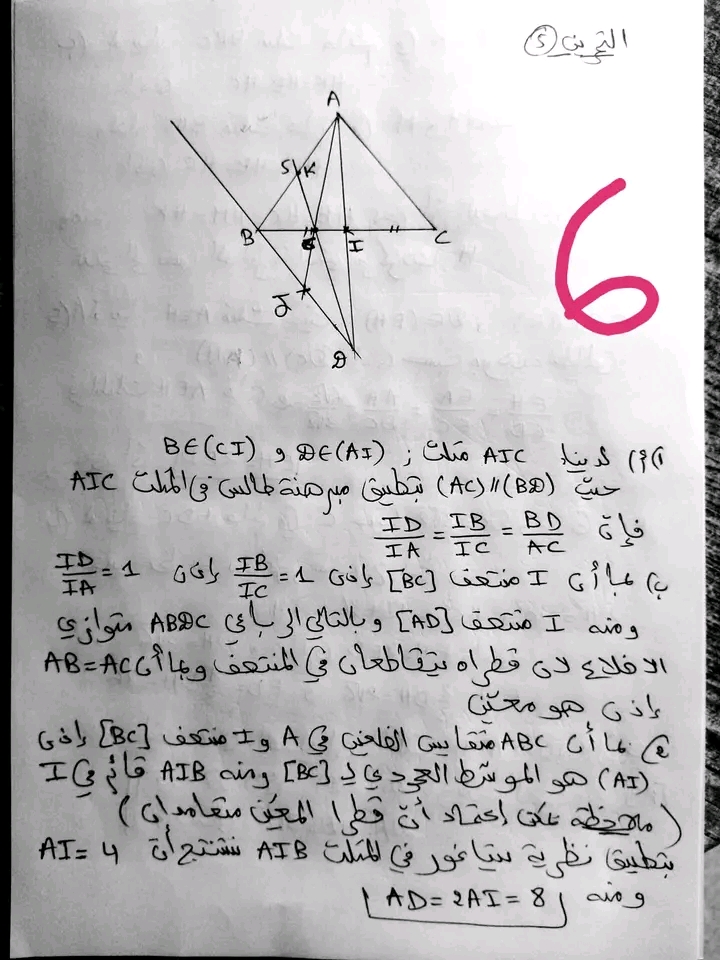 التمرين (5)
6
A
S K
B G I C
J
D
1) أ) لدينا AIC مثلث ; D∈(AI) و B∈(CI)
حيث (AC)//(BD) بتطبيق مبرهنة طالس في المثلث AIC
فإن ID/IA = IB/IC = BD/AC
ب) بما أن I منتصف [BC] إذن IB/IC = 1 إذن ID/IA = 1
ومنه I منتصف [AD] وبالتالي الرباعي ABDC متوازي
الاضلاع لان قطراه يتقاطعان في المنتصف وبما أن AB=AC
إذن هو معيّن
بما أن ABC متقايس الضلعين في A و I منتصف [BC] إذن
(AI) هو الموسّط العمودي لـ [BC] ومنه AIB قائم في I
(ملاحظة يمكن إعتماد أنّ قطرا المعيّن متعامدان)
بتطبيق نظرية بيتاغور في المثلث AIB نستنتج أن AI = 4
ومنه AD = 2AI = 8